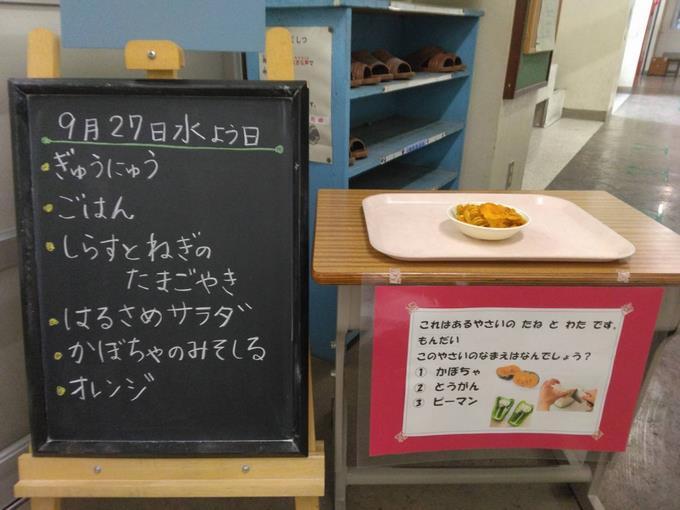 9月27日水よう日
ぎゅうにゅう
ごはん
しらすとねぎの
たまごやき
はるさめサラダ
かぼちゃのみそしる
オレンジ
これはあるやさいの たね と わた です。
もんだい
このやさいのなまえはなんでしょう？
① かぼちゃ
② とうがん
③ ピーマン